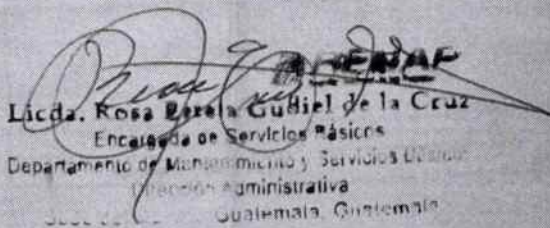 RENAP
Licda. Rosa Gudiel de la Cruz
Encargada de Servicios Básicos
Departamento de Mantenimiento y Servicios
Dirección Administrativa
Guatemala, Guatemala